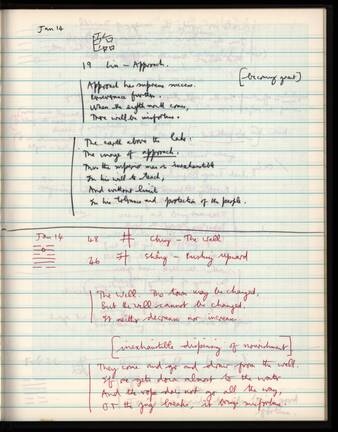 Jan 14
臨
19 Lin - Approach.
[becoming great]
Approach has supreme success.
Perseverance furthers.
When the eighth month comes,
There will be misfortune.
The earth above the lake:
The image of approach.
Thus the superior man is inexhaustible
In his will to teach,
And without limit
In his tolerance and protection of the people.
Jan 14
48 井 Ching - The Well
46 升 Shêng - Pushing Upward
The Well. The town may be changed,
But the well cannot be changed.
It neither decreases nor increases.
[inexhaustible dispensing of nourishment]
They come and go and draw from the well.
If one gets down almost to the water
And the rope does not go all the way,
Or the jug breaks, it brings misfortune.